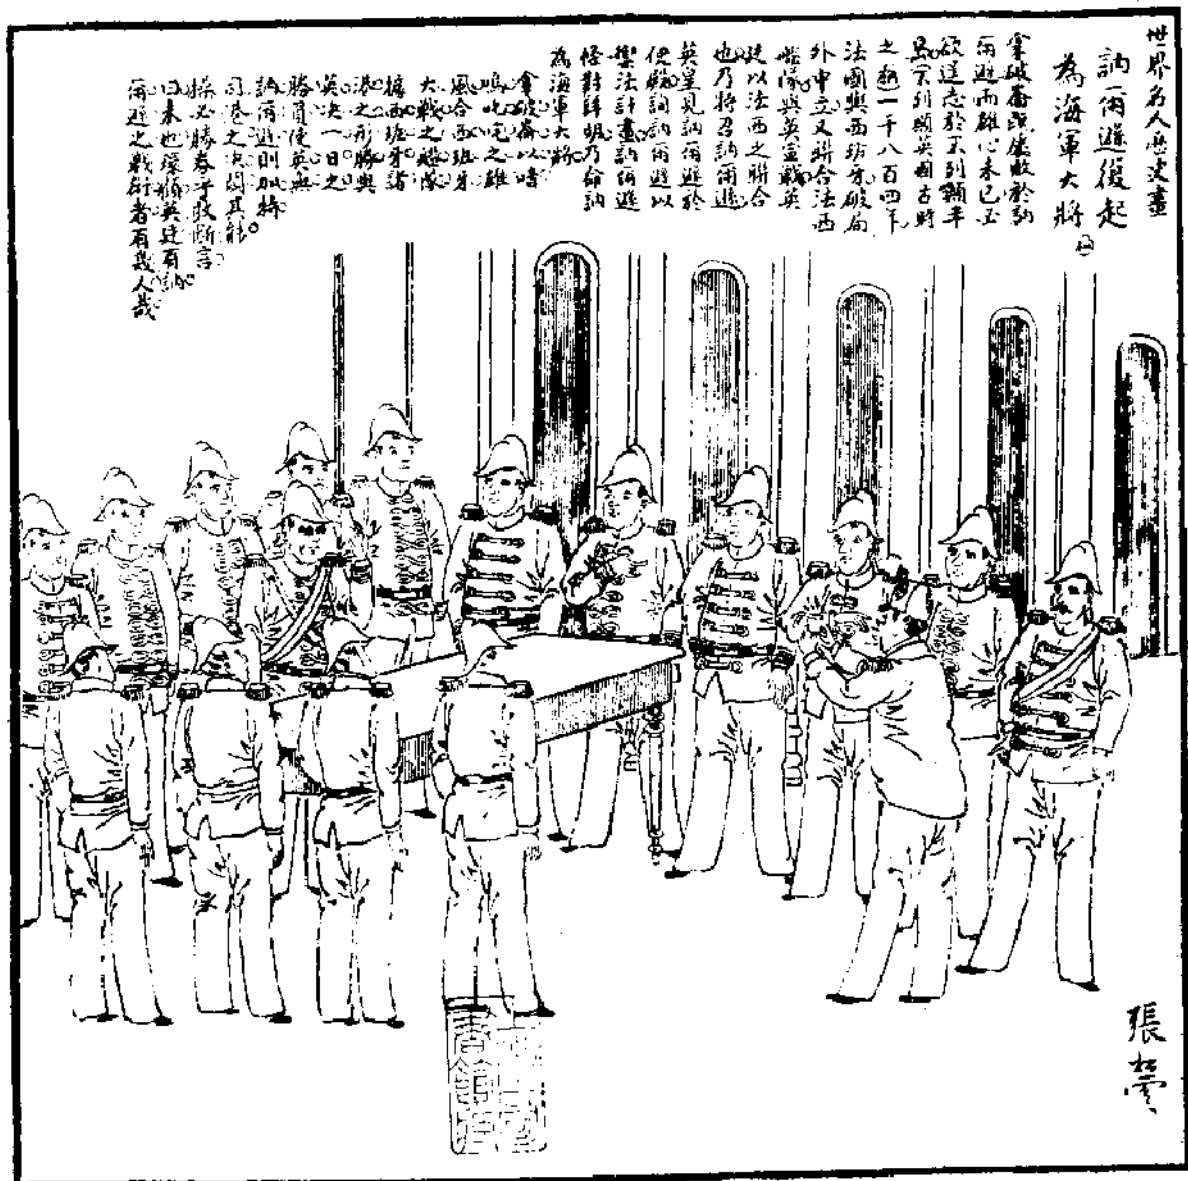 世界名人歷史畫
訥爾遜復起
為海軍大將
拿破崙既屢敗於訥
爾遜而雄心未已必
欲逞志於不列顛半
島不列顛英國古時
之 一千八百四年
法國與西班牙破局
外中立又聯合法西
艦隊與英宣戰英
廷以法西之聯合
也乃將召訥爾遜
英皇見訥爾遜於
便殿詢訥爾遜以
禦法計畫訥爾遜
怪對歸朝乃命訥
為海軍大將
拿破崙以喑
嗚叱咤之雄
風合西班牙
大戰之艦隊
據西班牙諸
港之形勝與
英決一日之
勝負使英無
訥爾遜則加特
司港之決鬪其能
操必勝券乎敢斷言
曰未也環顧英廷有訥
爾遜之戰術者有幾人哉
張松雲